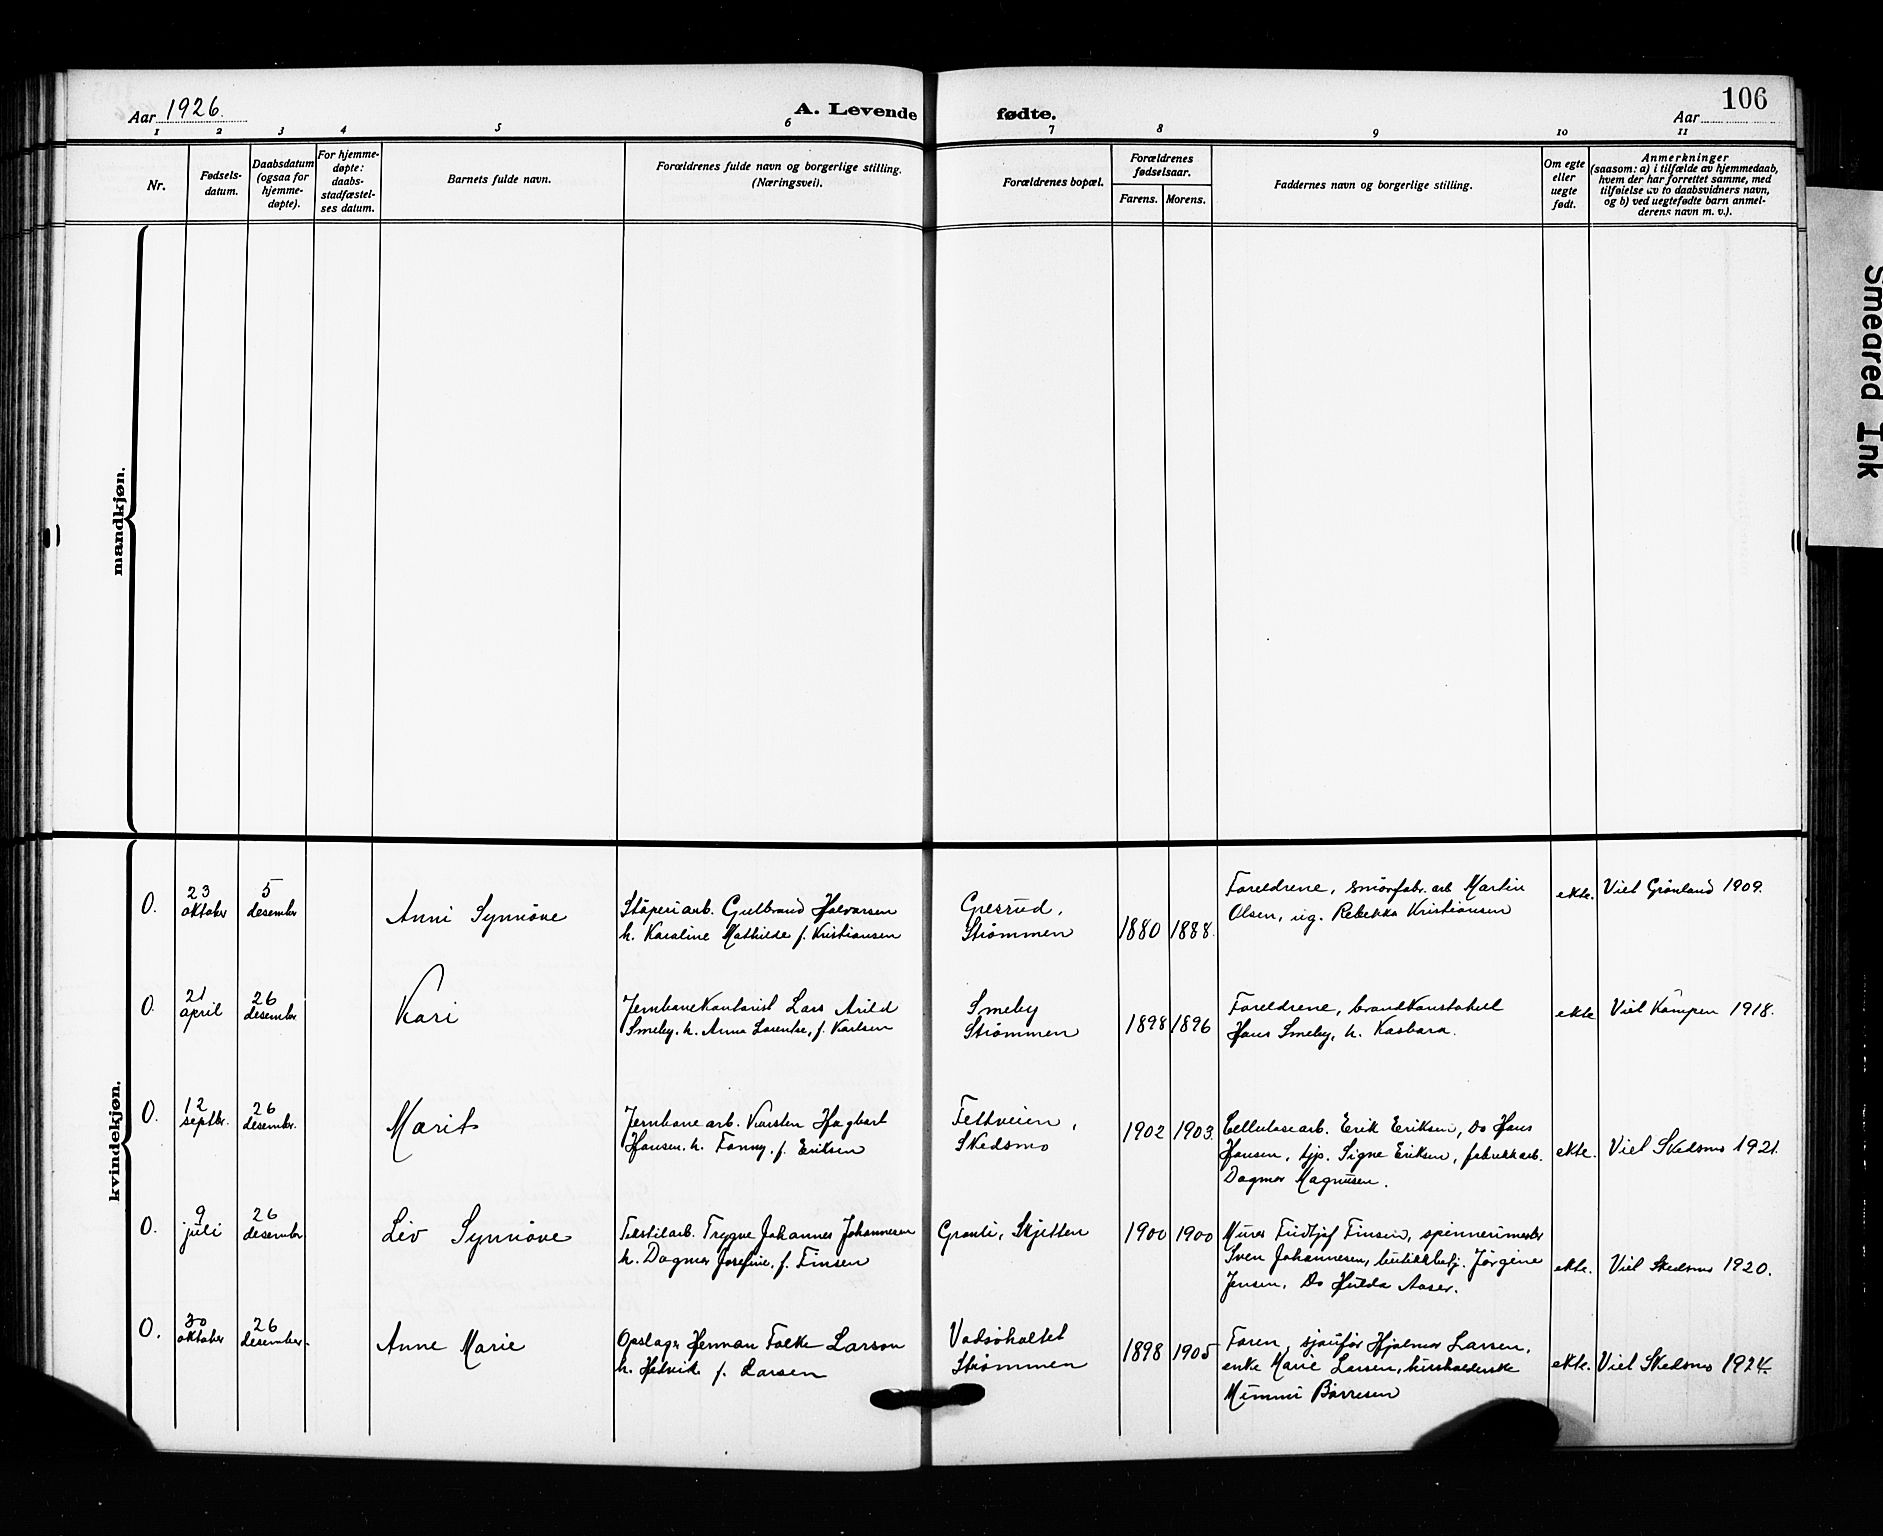 Aar 1926.
A. Levende fødte.
Aar
106
1 2 3 4 5 6 7 8 9 10 11
Nr.
Fødsels-
datum.
Daabsdatum
(ogsaa for
hjemme-
døpte).
For hjemme-
døpte:
daabs-
stadfæstel-
ses datum.
Barnets fulde navn.
Forældrenes fulde navn og borgerlige stilling.
(Næringsvei).
Forældrenes bopæl.
Forældrenes
fødselsaar.
Farens. Morens.
Faddernes navn og borgerlige stilling.
Om egte
eller
uegte
født.
Anmerkninger
(saasom: a) i tilfælde av hjemmedaab,
hvem der har forrettet samme, med
tilføielse av to daabsvidners navn,
og b) ved uegtefødte barn anmel-
derens navn m. v.).
Smeared Ink
mandkjøn.
kvindekjøn.
0.
23
oktober
5
desember
Anni Synnöve
Stöperiarb. Gulbrand Halvorsen
h. Karoline Mathilde f. Kristiansen
Gresrud,
Strömmen
1880 1888.
Foreldrene, smörfabr. arb Martin
Olsen, ug. Rebekka Kristiansen
ekte.
Viet Grönland 1909.
0.
21
april
26
desember
Kari
Jernbanekontorist Lars Arild
Smeby, h. Anna Lorentse, f. Karlsen
Smeby
Strömmen
1898 1896
Foreldrene, brandkonstabel
Hans Smeby, h. Kasbara.
ekte
Viet Kampen 1918.
0.
12
septbr.
26
desember.
Marit
Jernbanearb. Karsten Hagbart
Hansen, h. Fanny, f. Eriksen
Fettveien,
Skedsmo
1902 1903.
Cellulosearb. Erik Eriksen, do Hans
Hansen, tjp. Signe Eriksen, fabrikkarb.
Dagmar Magnusen.
ekte.
Viet Skedsmo 1921.
0.
9
juli
26
desember
Liv Synnöve
Tekstilarb. Trygve Johannes Johannesen
h. Dagmar Josefine, f. Finsen
Granli, Skjetten
1900 1900
Murer Fridtjof Finsen, spinnerimester
Sven Johannesen, butikkbetj. Jörgine
Jensen, do Hulda Aaser.
ekte.
Viet Skedsmo 1920.
0.
30
oktober
26
desember.
Anne Marie
Opslager Herman Falke Larsen
h. Hedvik f. Larsen
Strömmen
1898 1905
Faren, sjauför Hjalmar Larsen,
enke Marie Larsen, husholderske
Mimmi Börresen
ekte.
Viet Skedsmo 1924.